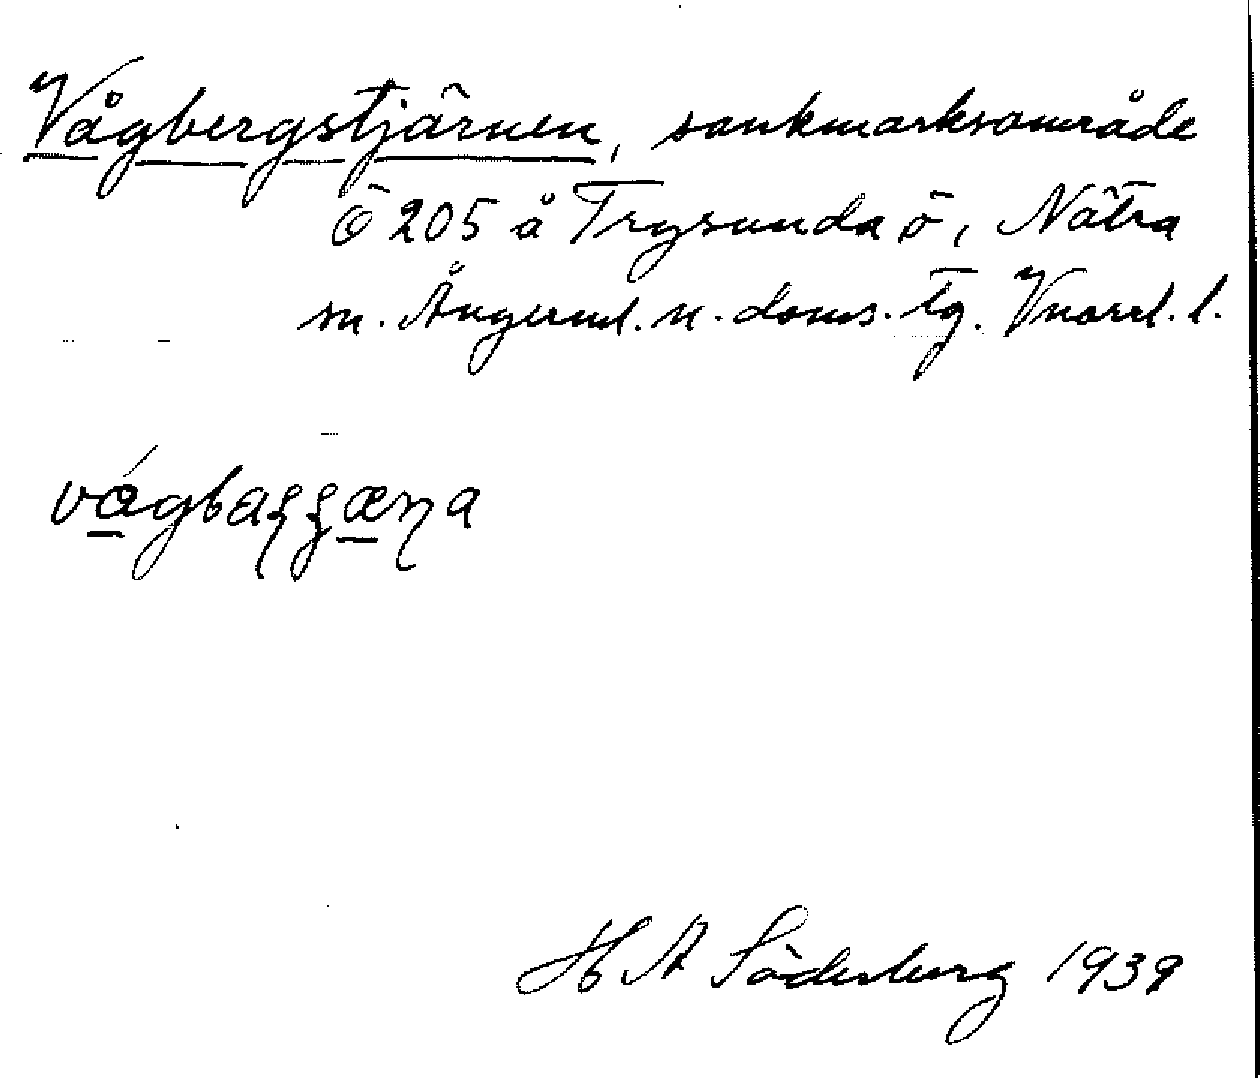 Vågbergstjärnen, sankmarksområde
Ö 205 å Trysunda ö, Nätra
sn. Ångerml. n. doms. tg. Vnorrl. l.
H A Söderberg 1939